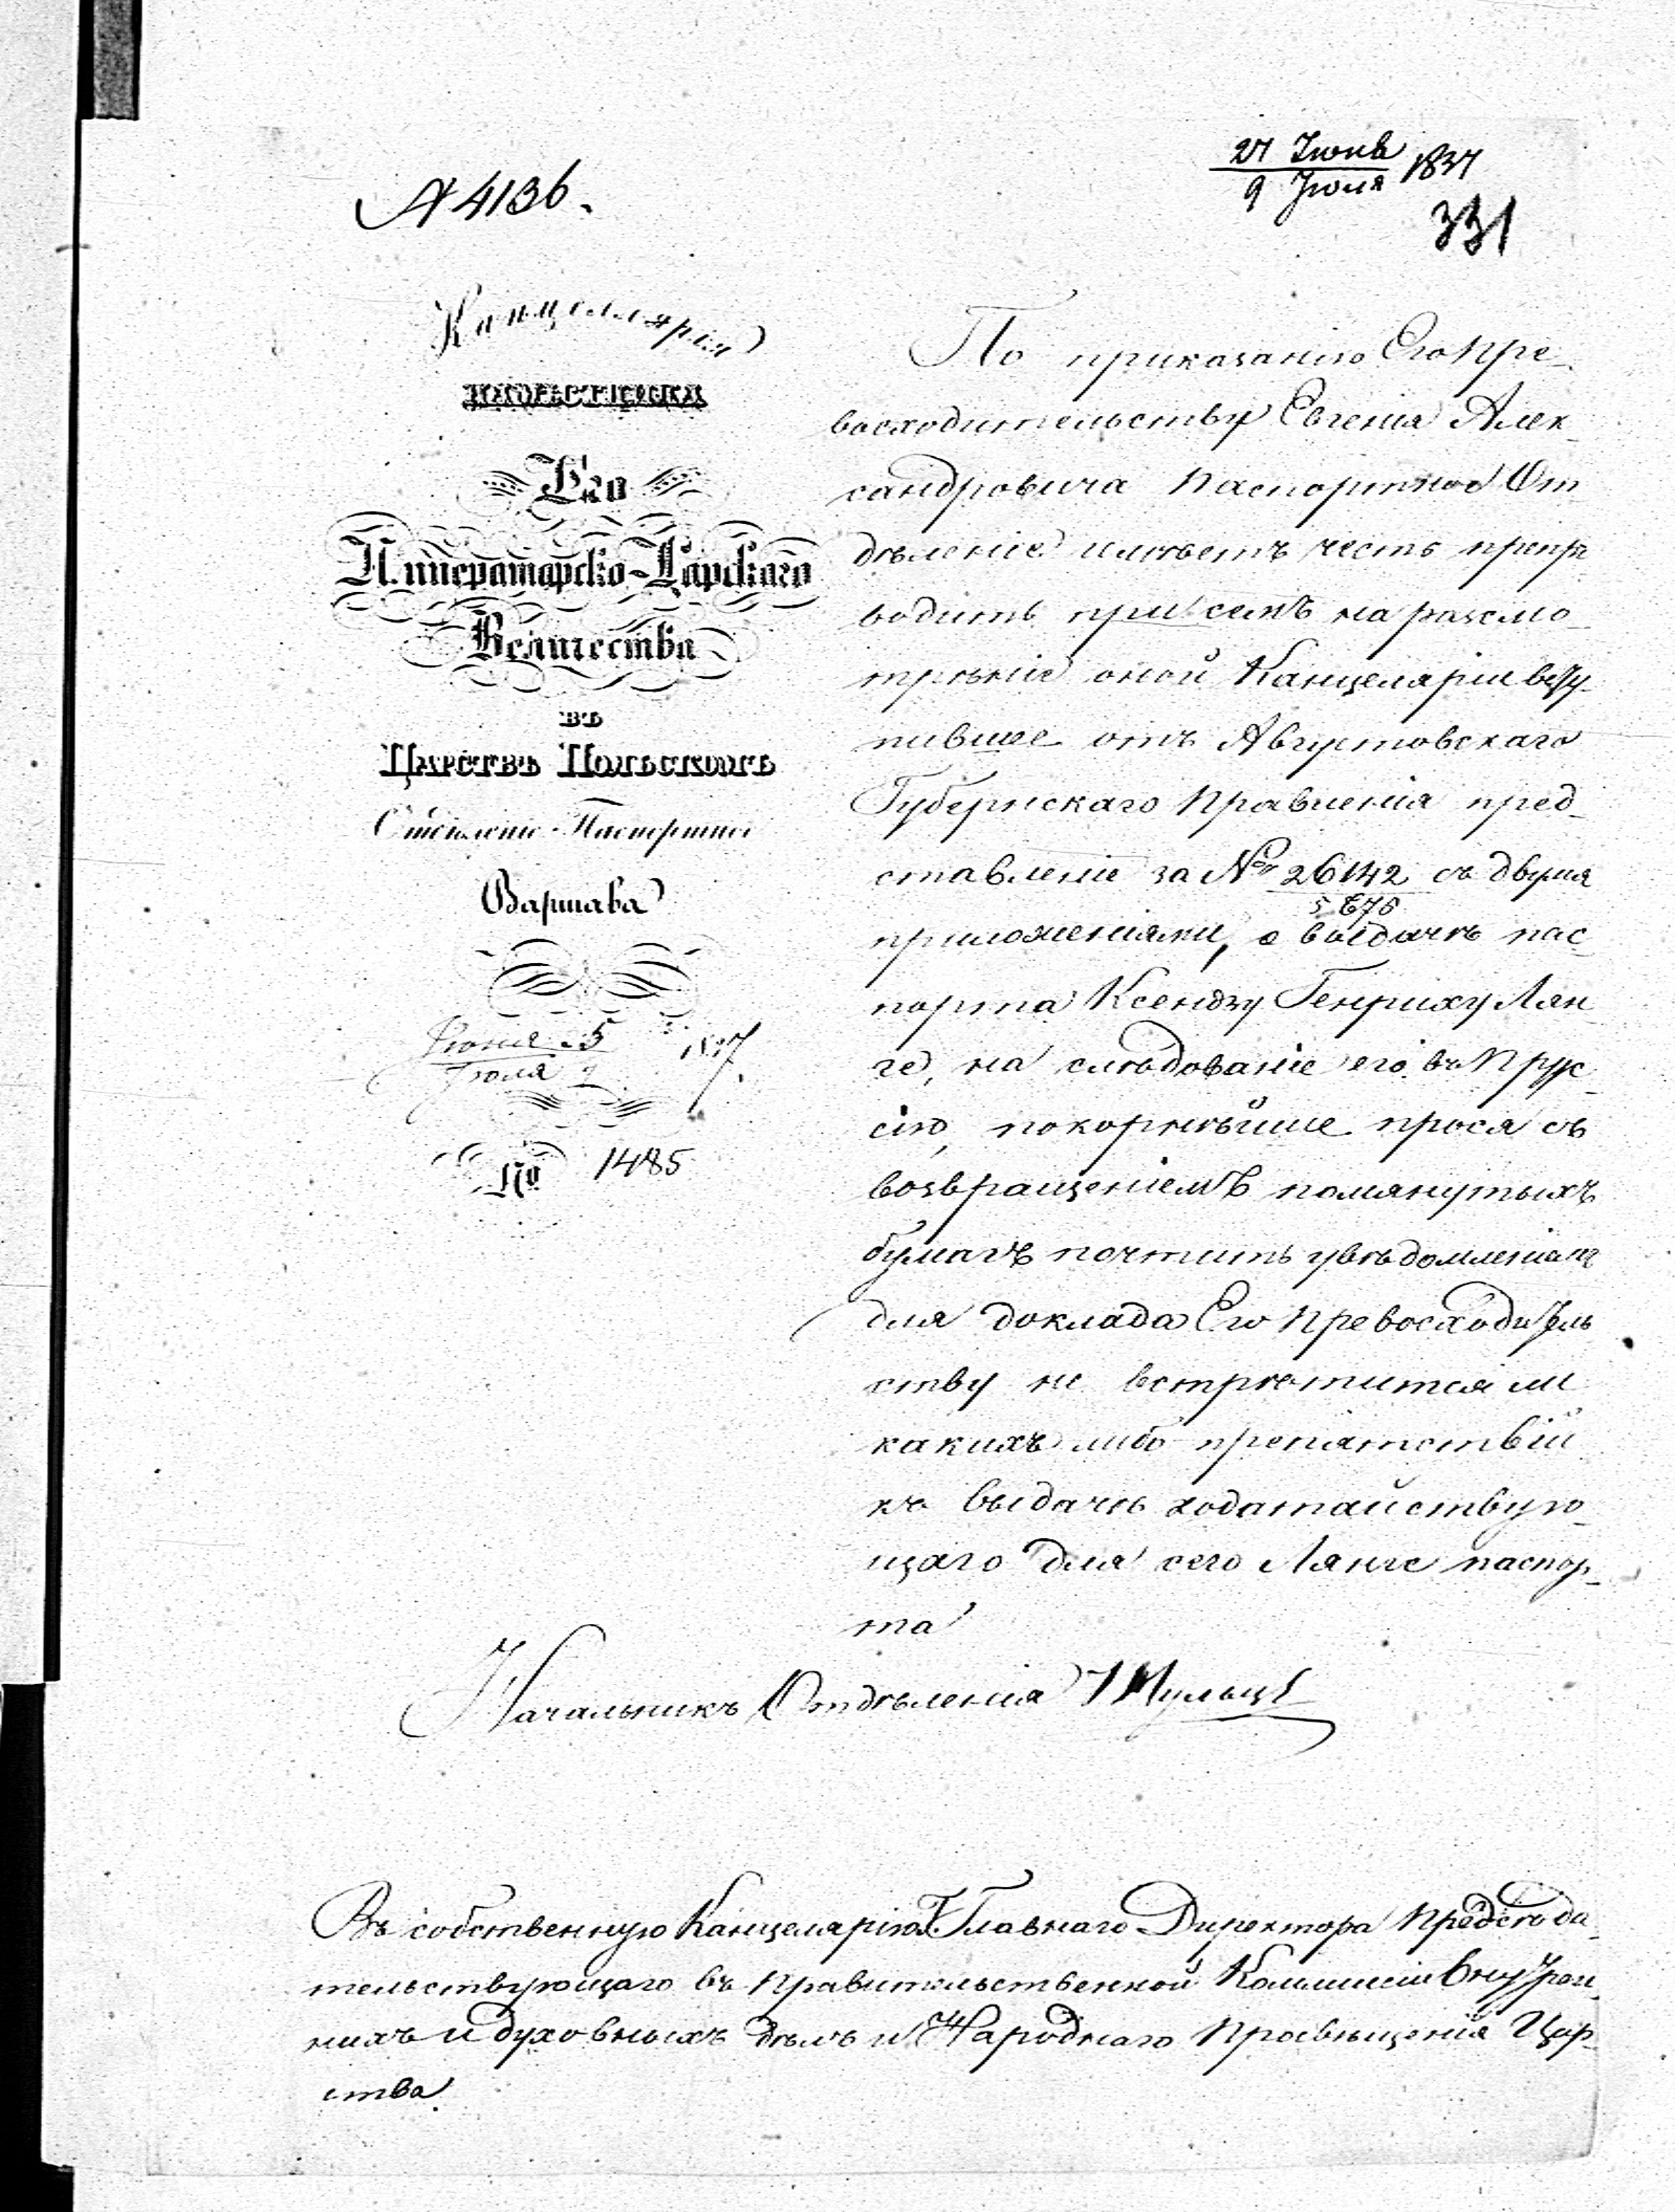 № 4136.
27 Июня 1837
9 Июля
331
Канцеллярія
НАМѢСТНИКА
Его
Императорско-Царскаго
Величества
въ
Царствѣ Польскомъ
Отдѣленіе Паспортное
Варшава
Іюня 25 1837.
Іюля
№ 1485
По приказанію Его Пре-
восходительству Евгенія Алек-
сандровича Паспортное От
дѣленіе имѣетъ честь препро
водить при семъ на разсмо-
трѣніе оной Канцеляріи всту-
пившее отъ Августовскаго
Губернскаго Правленія пред-
ставленіе за № 26142 съ двумя
приложеніями, о выдачѣ пас-
порта Ксендзу Генриху Лян
ге, на слѣдованіе его въ Прус-
сію, покорнѣйше прося съ
возвращеніемъ помянутыхъ
бумагъ почтить увѣдомленіемъ
для доклада Его Превосходитель
ству не встрѣтится ли
какихъ либо препятствій
къ выдачѣ ходатайствую-
щаго для сего Лянге паспор-
та
Начальникъ Отдѣленія Шульцъ
Въ собственную Канцелярію Г. Главнаго Директора Предсѣда-
тельствующаго въ Правительственной Коммисіи Внутрен-
нихъ и духовныхъ дѣлъ и Народнаго Просвѣщенія Цар-
ства.